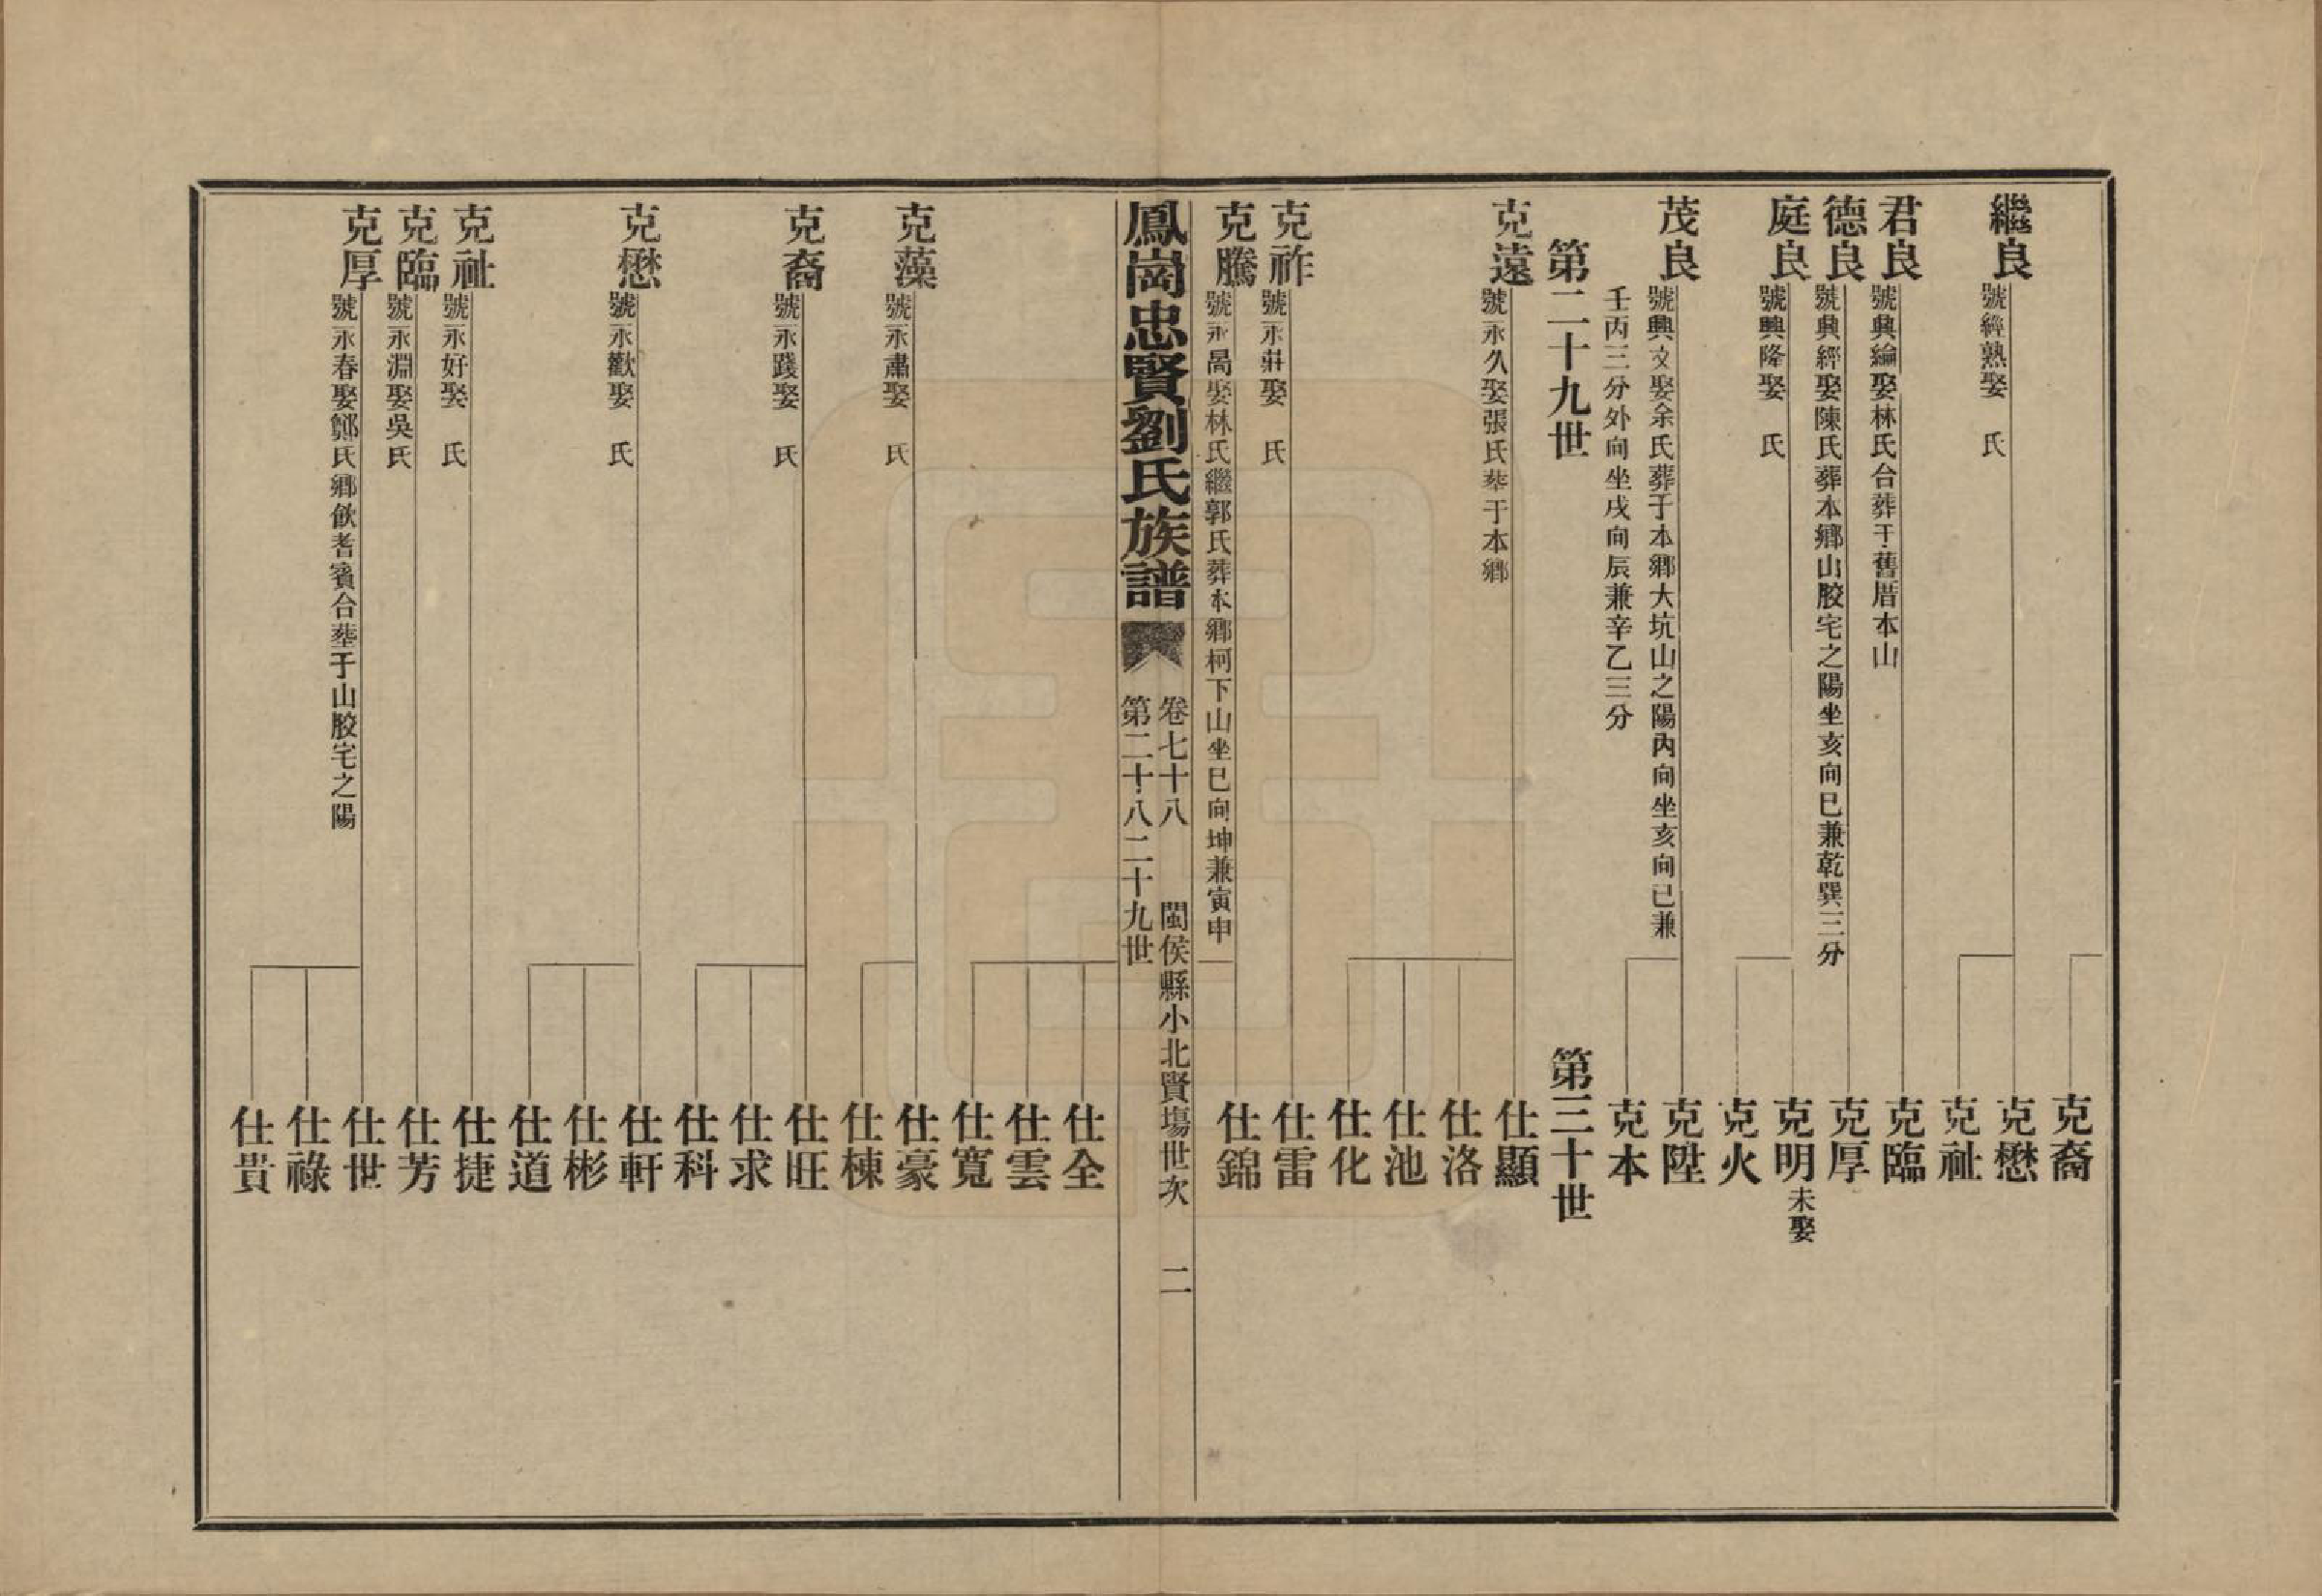 克裔
繼良
號經熟娶　氏
克懋
克祉
君良
號興綸娶林氏合葬于舊厝本山
克臨
德良
號興經娶陳氏葬本鄉山膠宅之陽坐亥向巳兼乾巽三分
克厚
庭良
號興隆娶　氏
克明未娶
克火
茂良
號興文娶余氏葬于本鄉大坑山之陽內向坐亥向巳兼
壬丙三分外向坐戌向辰兼辛乙三分
克陞
克本
第二十九世
第三十世
克遠
號永久娶張氏葬于本鄉
仕顯
仕洛
仕池
仕化
克祚
號永莊娶　氏
仕雷
克騰
號永昺娶林氏繼郭氏葬本鄉柯下山坐巳向坤兼寅申
仕錦
鳳崗忠賢劉氏族譜
卷七十八　閩侯縣小北賢塲世次　二
第二十八二十九世
仕全
仕雲
仕寬
克藻
號永肅娶　氏
仕豪
仕棟
克裔
號永踐娶　氏
仕旺
仕求
仕科
克懋
號永歡娶　氏
仕軒
仕彬
仕道
克祉
號永好娶　氏
仕捷
克臨
號永淵娶吳氏
仕芳
克厚
號永春娶鄭氏鄉飲耆賓合葬于山膠宅之陽
仕世
仕祿
仕貴